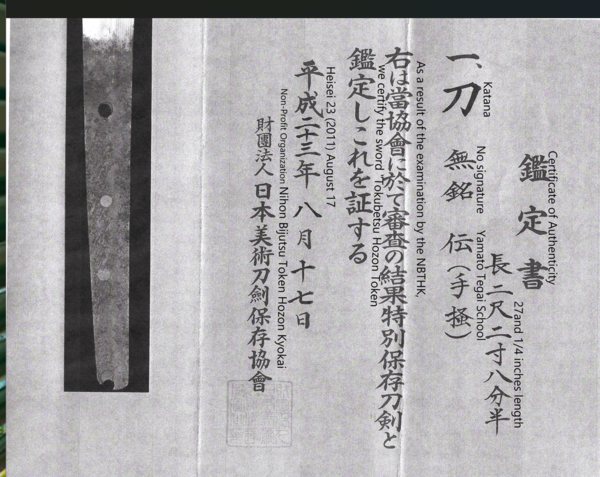 鑑定書
Certificate of Authenticity
一、刀 無銘 伝(手掻)
Katana No signature Yamato Tegai School
長二尺二寸八分半
27and 1/4 inches length
右は當協會に於て審査の結果特別保存刀剣と
As a result of the examination by the NBTHK,
鑑定しこれを証する
we certify the sword Tokubetsu Hozon Token
平成二十三年八月十七日
Heisei 23 (2011) August 17
財團法人 日本美術刀劍保存協會
Non-Profit Organization Nihon Bijutsu Token Hozon Kyokai